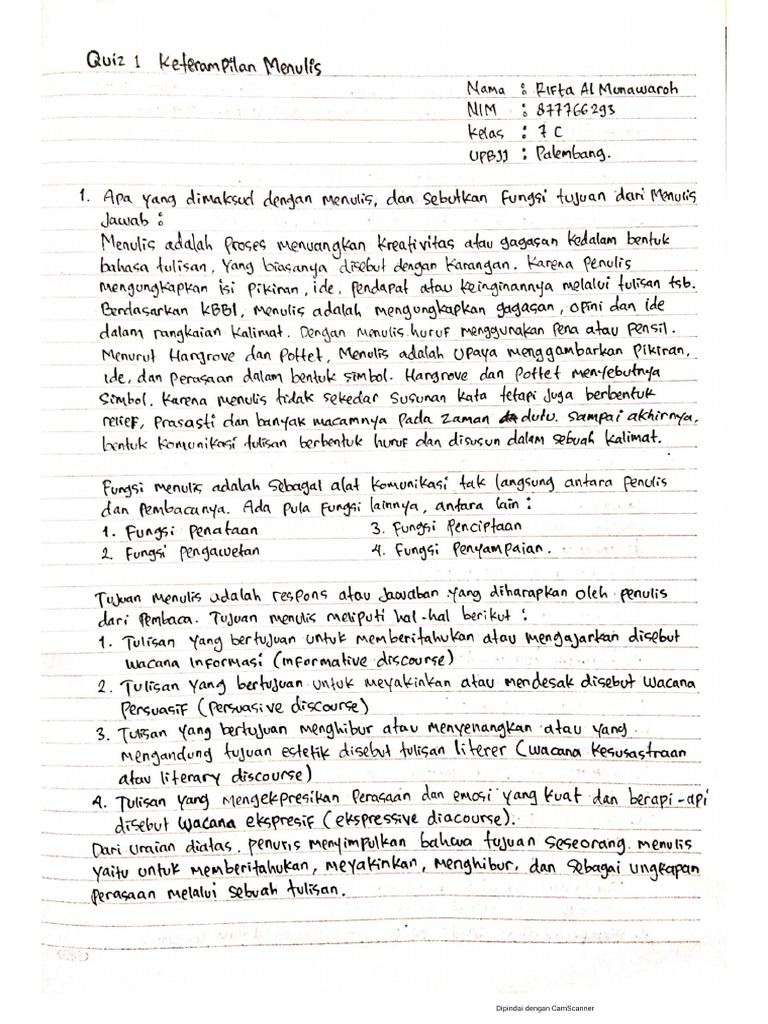 Quiz 1 Keterampilan Menulis
Nama : Rifta Al Munawaroh
NIM : 877766293
Kelas : 7 C
UPBJJ : Palembang.
1. Apa yang dimaksud dengan menulis, dan sebutkan fungsi tujuan dari Menulis
Jawab :
Menulis adalah proses menuangkan kreativitas atau gagasan kedalam bentuk
bahasa tulisan, yang biasanya disebut dengan karangan. Karena penulis
mengungkapkan isi pikiran, ide, pendapat atau keinginannya melalui tulisan tsb.
Berdasarkan KBBI, menulis adalah mengungkapkan gagasan, opini dan ide
dalam rangkaian kalimat. Dengan menulis huruf menggunakan pena atau pensil.
Menurut Hargrove dan Pottet, Menulis adalah upaya menggambarkan pikiran,
ide, dan perasaan dalam bentuk simbol. Hargrove dan Pottet menyebutnya
simbol. Karena menulis tidak sekedar susunan kata tetapi juga berbentuk
relief, prasasti dan banyak macamnya pada zaman dulu. Sampai akhirnya,
bentuk komunikasi tulisan berbentuk huruf dan disusun dalam sebuah kalimat.
Fungsi menulis adalah sebagai alat komunikasi tak langsung antara penulis
dan pembacanya. Ada pula fungsi lainnya, antara lain :
1. Fungsi Penataan 3. Fungsi Penciptaan
2. Fungsi Pengawetan 4. Fungsi Penyampaian.
Tujuan Menulis adalah respons atau jawaban yang diharapkan oleh penulis
dari pembaca. Tujuan menulis meliputi hal-hal berikut :
1. Tulisan yang bertujuan untuk memberitahukan atau mengajarkan disebut
wacana informasi (informative discourse)
2. Tulisan yang bertujuan untuk meyakinkan atau mendesak disebut wacana
persuasif (persuasive discourse)
3. Tulisan yang bertujuan menghibur atau menyenangkan atau yang
mengandung tujuan estetik disebut tulisan literer (wacana kesusastraan
atau literary discourse)
4. Tulisan yang mengekpresikan perasaan dan emosi yang kuat dan berapi-api
disebut wacana ekspresif (ekspressive diacourse).
Dari uraian diatas, penulis menyimpulkan bahwa tujuan seseorang menulis
yaitu untuk memberitahukan, meyakinkan, menghibur, dan sebagai ungkapan
perasaan melalui sebuah tulisan.
Dipindai dengan CamScanner